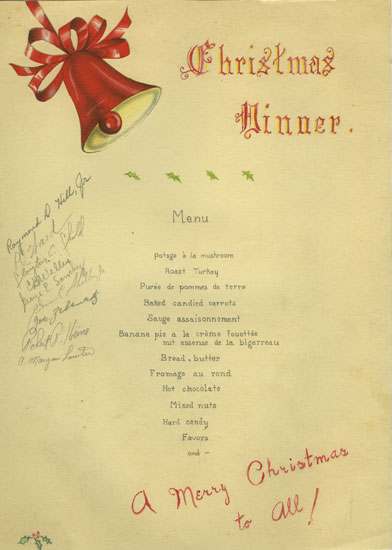 Christmas
Dinner.
Menu
Potage à la mushroom
Roast Turkey
Purée de pommes de terre
Baked candied carrots
Sauge assaisonnement
Banana pie a la crème fouettée
mit essense de la bigarreau
Bread, butter
Fromage au rond
Hot chocolate
Mixed nuts
Hard candy
Favors
and -
A Merry Christmas
to All!
Raymond D. Hill, Jr